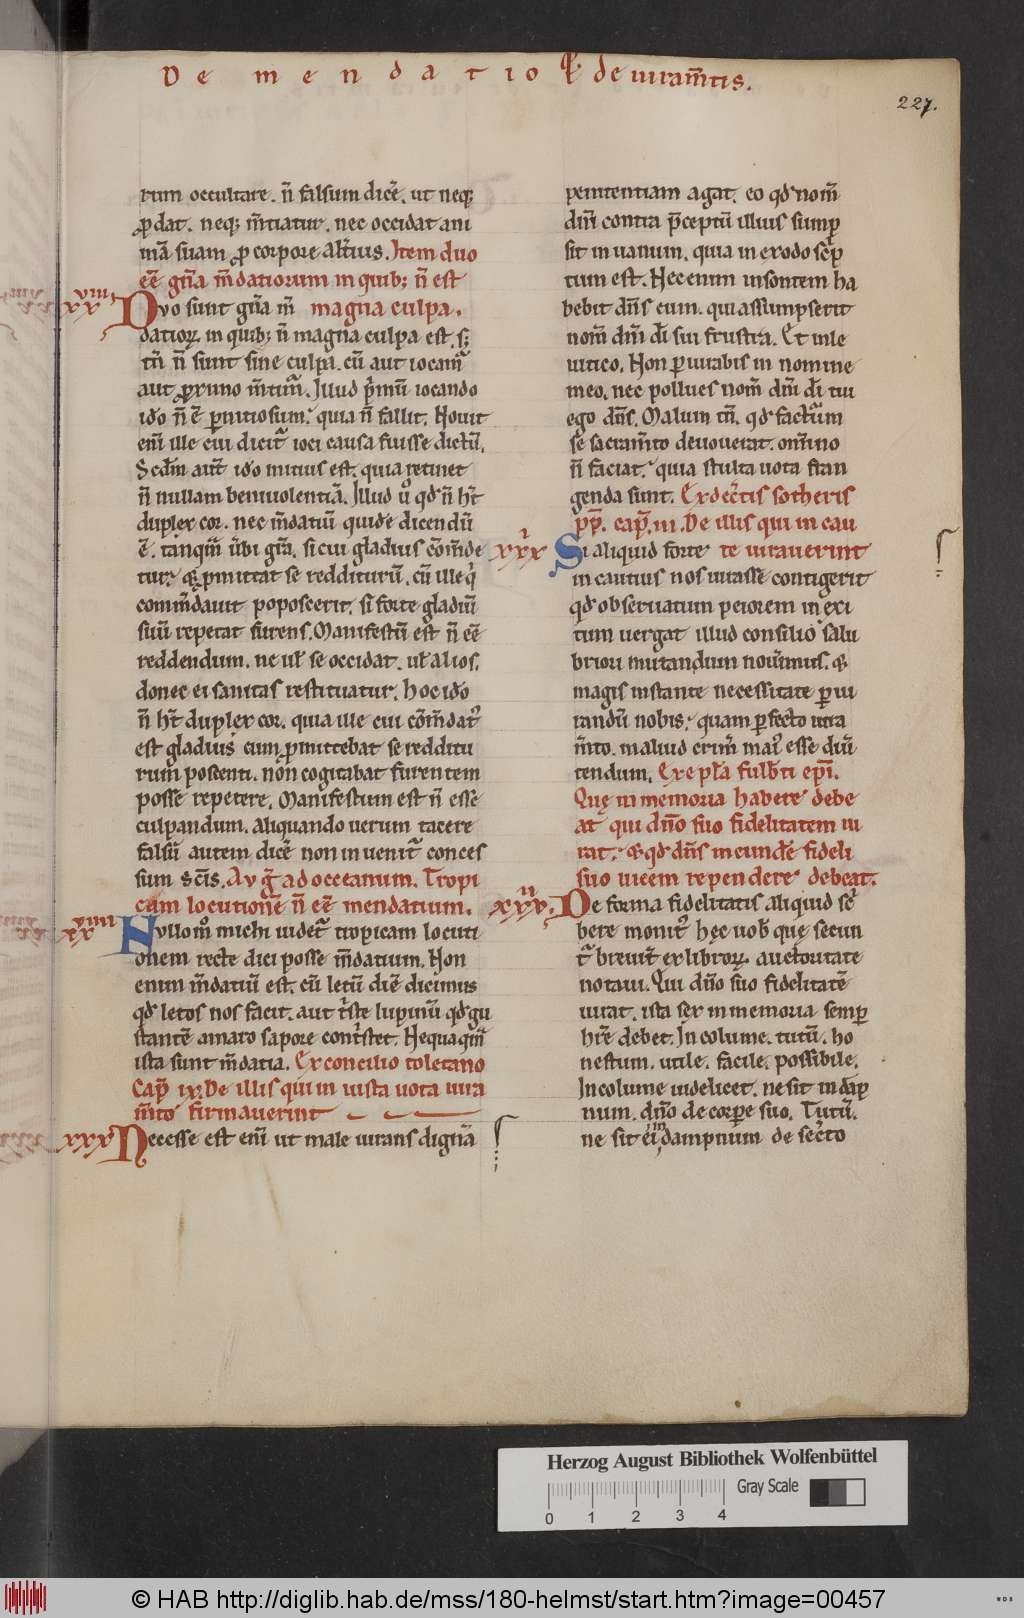 De mendatio q̄ de iuram̄tis.
227.
rum occultare. n̄ falsum dicē. ut neq;
ꝓdat. neq; m̄tiatur. nec occidat ani
mā suam ꝓ corpore alt̄ius. Item duo
eē gn̄a m̄datiorum in quib; n̄ est
magna culpa.
xxviii
Dvo sunt gn̄a m̄
datioꝝ. in quib; n̄ magna culpa est. s;
tn̄ n̄ sunt sine culpa. cū aut iocam̄
aut ꝓximo m̄tim̄. Illud p̄mū iocando
iđo n̄ ē ꝑnitiosum. quia n̄ fallit. Nouit
eni͂ ille cui dicit̄ ioci causa fuisse dictū.
Scđm aut̄ iđo mitius est. quia retinet
n̄ nullam beniuolentiā. Illud ů qđ n̄ ht̄
duplex cor. nec m̄datiū quidē dicendū
ē. tanqm̄ ūbi gr̄a. si cui gladius cōm̄de
tur. & ꝓmittat se redditurū. cū ille q̄
comm̄dauit poposcerit. si forte gladiū
suū repetat furens. Manifestū est n̄ eē
reddendum. ne uł se occidat. uł alios.
donec ei sanitas restituatur. hoc iđo
n̄ ht̄ duplex cor. quia ille cui cōm̄dat᷒
est gladius cum ꝓmittebat se redditu
rum poscenti. non cogitabat furentem
posse repetere. Manifestum est n̄ esse
culpandum. aliquando uerum tacere
falsū autem dicē non inuenit̄ conces
sum sc̄is. Avḡ ad occeanum. Tropi
cam locutionē n̄ eē mendatium.
xxviiii
Nvllom̊ michi uidet̄ tropicam locuti
onem recte dici posse m̄datium. Non
enim m̄datiū est. cū letū diē dicimus
qđ letos nos facit. aut t̄ste lupinū qđ gu
stantē amaro sapore cont̄stet. Nequaqm̄
ista sunt m̄datia. Ex concilio toletano
Cap̄ ix. De illis qui iniusta uota iura
m̄to firmauerint
xxx
Necesse est eni͂ ut male iurans dignā
penitentiam agat. eo qđ nom̄
dn̄i contra p̄ceptū illius sump
sit in uanum. quia in exodo sc̄p
tum est. Nec enim insontem ha
bebit dn̄s eum. qui assumpserit
nom̄ dn̄i dī sui frustra. Et in le
uitico. Non ꝑiurabis in nomine
meo. nec pollues nom̄ dn̄i dī tui
ego dn̄s. Malum tn̄. qđ facturum
se sacram̄to deuouerat. om̄ino
n̄ faciat. quia stulta uota fran
genda sunt. Ex dec̄tis sotheris
pp̄. cap̄. iii. De illis qui in cau
te iurauerint
Si aliquid forte
in cautius nos iurasse contigerit
qđ obseruatum peiorem in exi
tum uergat illud consilio salu
briori mutandum nouimus. &
magis instante necessitate ꝑiu
randū nobis. quam ꝑfecto iura
m̄to. in aliud crim̄ mai᷒ esse diū
tendum. Ex epl̄a fulb̄ti epī.
Quę in memoria habere debe
at qui dn̄o suo fidelitatem iu
rat. & qđ dn̄s in eundē fideli
suo uicem rependere debeat.
De forma fidelitatis aliquid sc̄
bere monit᷒ hęc uoƀ quę secun
t̄ breuit̄ ex libroꝝ auctoritate
notaui. Qui dn̄o suo fidelitatē
iurat. ista sex in memoria semp̄
hr̄e debet. Incolume. tutū. ho
nestum. utile. facile. possibile.
Incolume uidelicet. ne sit in dāp
num. dn̄o de corpore suo. Tutū.
ne sit ei in dampnum de sec̄to
Herzog August Bibliothek Wolfenbüttel
Gray Scale
0 1 2 3 4
© HAB http://diglib.hab.de/mss/180-helmst/start.htm?image=00457